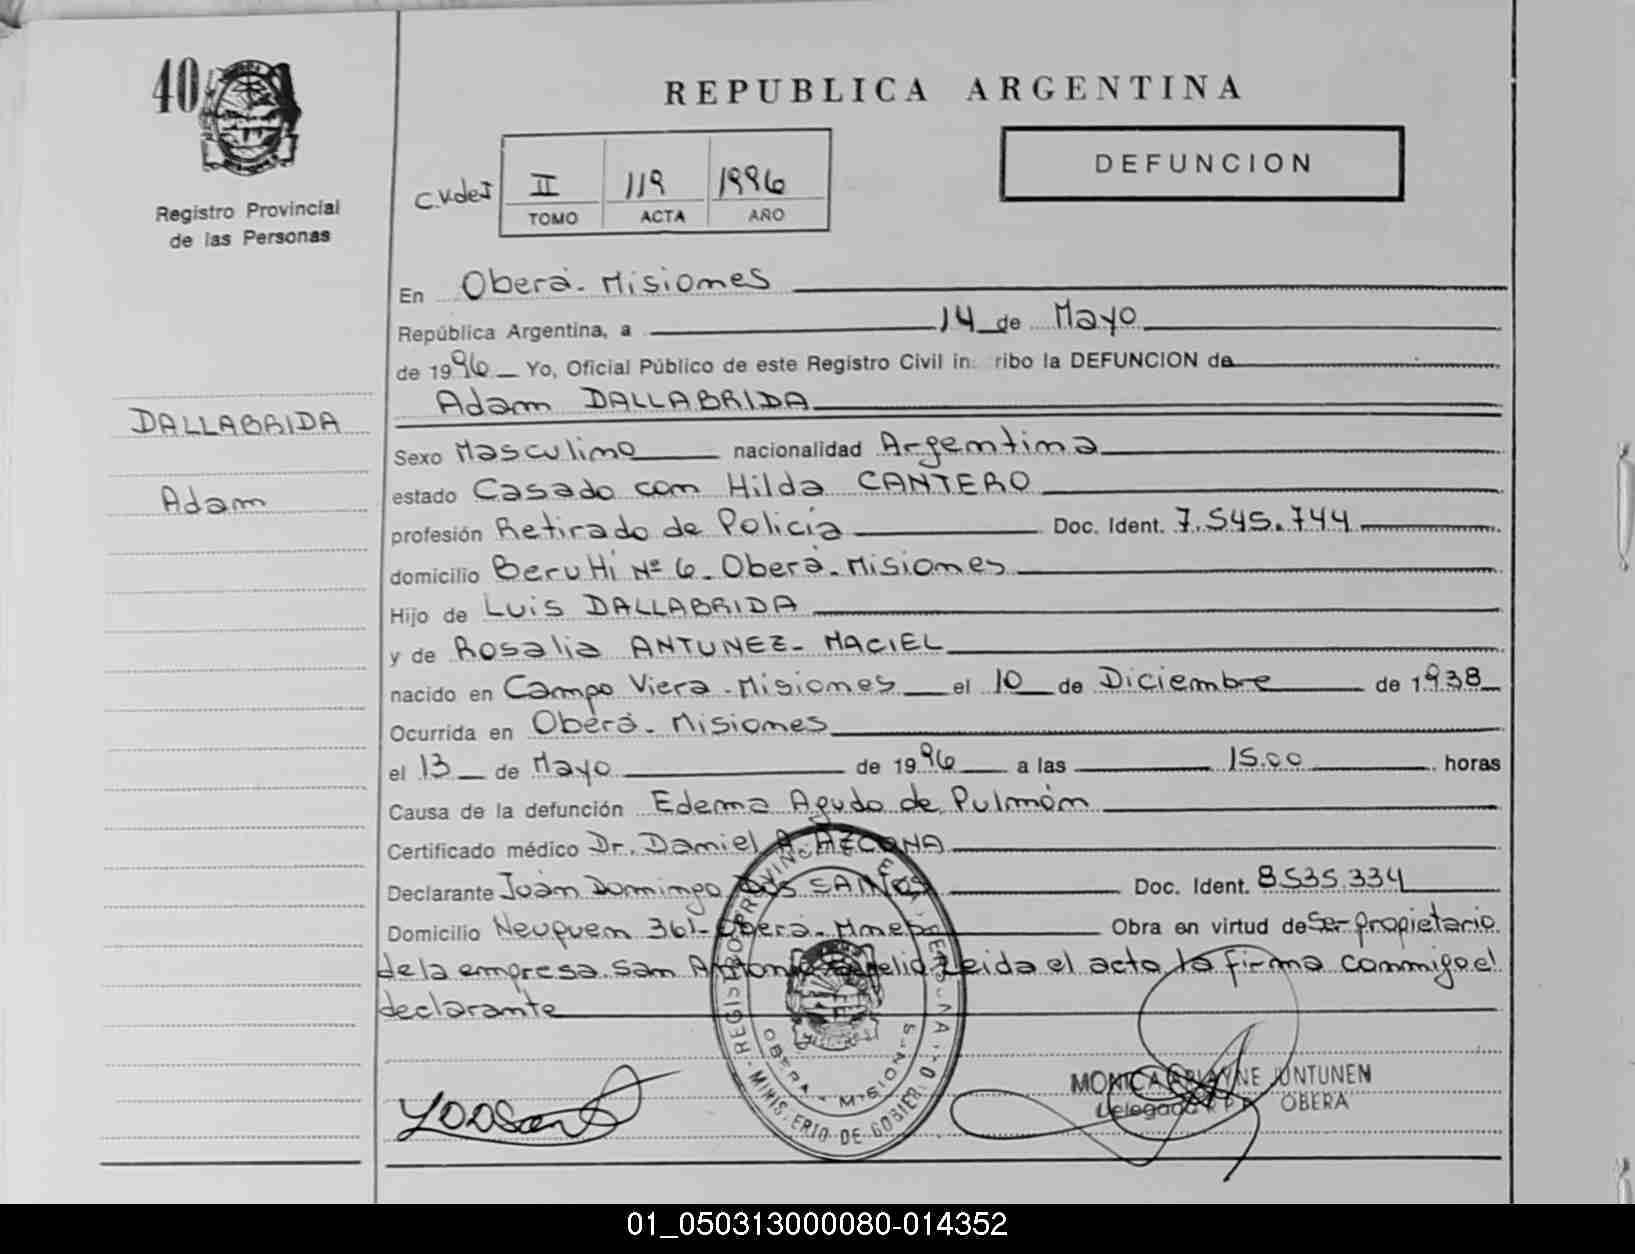 40
REPUBLICA ARGENTINA
DEFUNCION
C.V.deI II 119 1996
TOMO ACTA AÑO
Registro Provincial
de las Personas
En Oberá - Misiones
República Argentina, a 14 de Mayo
de 1996 Yo, Oficial Público de este Registro Civil in ribo la DEFUNCION de
Adam DALLABRIDA
DALLABRIDA
Adam
Sexo Masculino nacionalidad Argentina
estado Casado con Hilda CANTERO
profesión Retirado de Policía Doc. Ident. 7.545.744
domicilio Berutti Nº 6 - Oberá - Misiones
Hijo de Luis DALLABRIDA
y de Rosalia ANTUNEZ - MACIEL
nacido en Campo Viera - Misiones el 10 de Diciembre de 1938
Ocurrida en Oberá - Misiones
el 13 de Mayo de 1996 a las 15.00 horas
Causa de la defunción Edema Agudo de Pulmón
Certificado médico Dr. Daniel A. AZCONA
Declarante Juan Domingo DOS SANTOS Doc. Ident. 8535.334
Domicilio Neuquen 361 - Oberá - Mnes Obra en virtud de Ser propietario
de la empresa San Antonio Leida el acta la firma conmigo el
declarante
MONICA JUNTUNEN
Delegada R P P OBERA
REGISTRO PROVINCIAL DE LAS PERSONAS
MINISTERIO DE GOBIERNO
OBERA - MISIONES
01_050313000080-014352